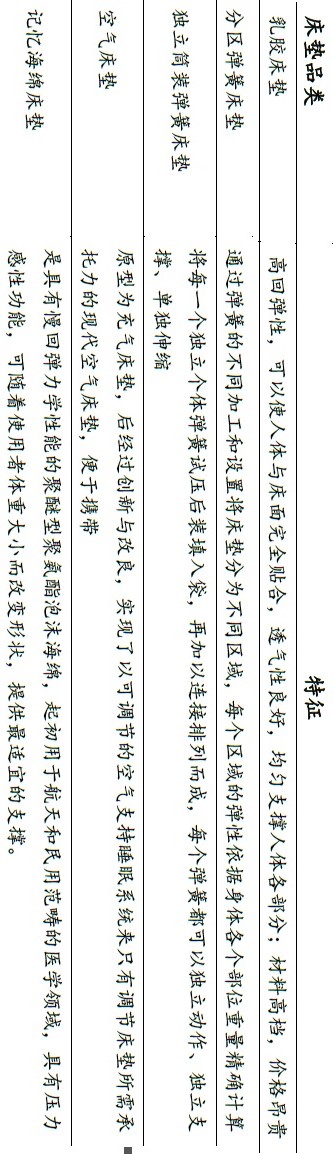 床垫品类 特征
乳胶床垫 高回弹性，可以使人体与床面完全贴合，透气性良好，均匀支撑人体各部分；材料高档，价格昂贵
分区弹簧床垫 通过弹簧的不同加工和设置将床垫分为不同区域，每个区域的弹性依据身体各个部位重量精确计算
独立筒装弹簧床垫 将每一个独立个体弹簧试压后装填入袋，再加以连接排列而成，每个弹簧都可以独立动作、独立支
撑、单独伸缩
空气床垫 原型为充气床垫，后经过创新与改良，实现了以可调节的空气支持睡眠系统来只有调节床垫所需承
托力的现代空气床垫，便于携带
记忆海绵床垫 是具有慢回弹力学性能的聚醚型聚氨酯泡沫海绵，起初用于航天和民用范畴的医学领域，具有压力
感性功能，可随着使用者体重大小而改变形状，提供最适宜的支撑。